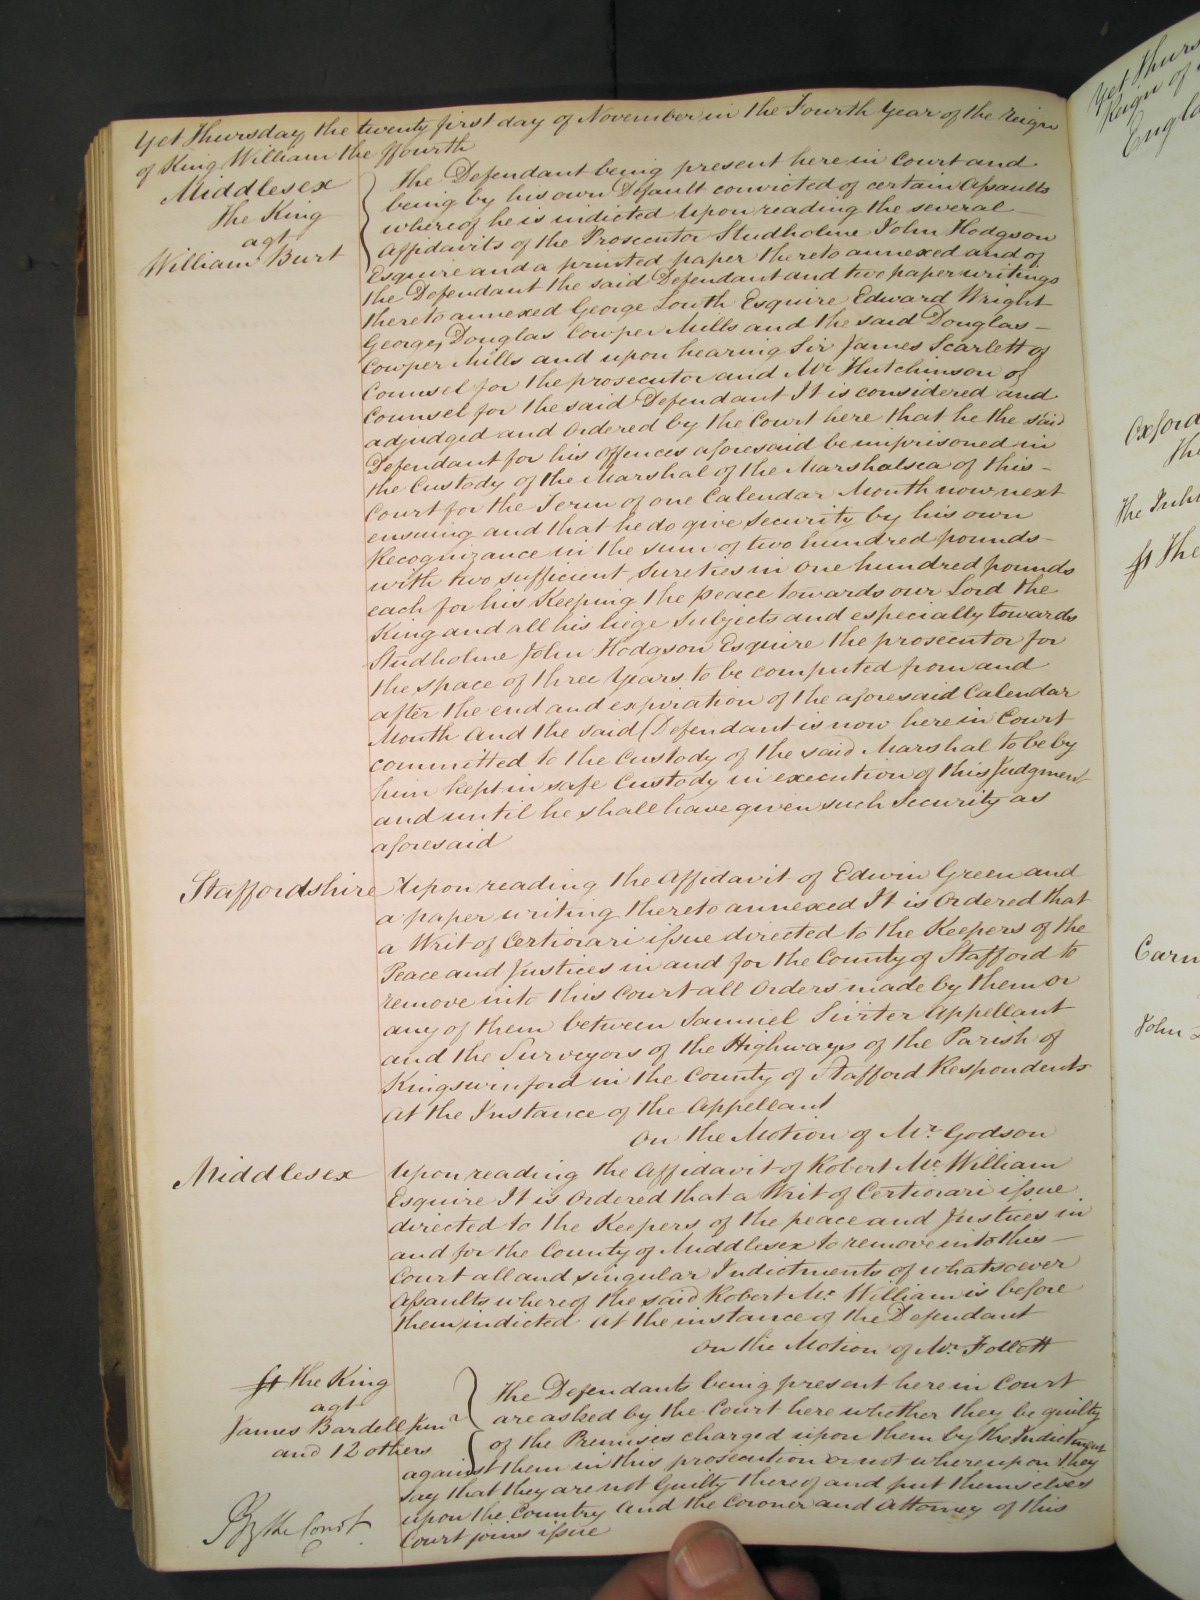 Yet Thursday the twenty first day of November in the Fourth Year of the Reign
of King William the ffourth
Middlesex
The King
agt
William Burt
The Defendant being present here in Court and
being by his own Default convicted of certain Assaults
whereof he is indicted Upon reading the several
Affidavits of the Prosecutor Studholme John Hodgson
Esquire and a printed paper thereto annexed and of
the Defendant the said Defendant and two paper writings
thereto annexed George Louth Esquire Edward Wright
George, Douglas Cowper Mills and the said Douglas
Cowper Mills and upon hearing Sir James Scarlett of
Counsel for the prosecutor and Mr Hutchinson of
Counsel for the said Defendant It is considered and
adjudged and ordered by the Court here that he the said
Defendant for his Offences aforesaid be imprisoned in
the Custody of the Marshal of the Marshalsea of this
Court for the Term of one Calendar Month now next
ensuing and that he do give Security by his own
Recognizance in the sum of two hundred pounds
with two sufficient Sureties in one hundred pounds
each for his Keeping the peace towards our Lord the
King and all his liege Subjects and especially towards
Studholme John Hodgson Esquire the prosecutor for
the space of three Years to be computed from and
after the end and expiration of the aforesaid Calendar
Month And the said Defendant is now here in Court
committed to the Custody of the said Marshal to be by
him kept in safe Custody in execution of this Judgment
and until he shall have given such Security as
aforesaid
Staffordshire
Upon reading the Affidavit of Edwin Green and
a paper writing thereto annexed It is Ordered that
a Writ of Certiorari issue directed to the Keepers of the
Peace and Justices in and for the County of Stafford to
remove into this Court all Orders made by them or
any of them between Samuel Appellant
and the Surveyors of the Highways of the Parish of
Kingswinford in the County of Stafford Respondents
At the Instance of the Appellant
On the Motion of Mr. Godson
Middlesex
Upon reading the Affidavit of Robert Mc. William
Esquire It is Ordered that a Writ of Certiorari issue
directed to the Keepers of the peace and Justices in
and for the County of Middlesex to remove into this
Court all and singular Indictments of whatsoever
Assaults whereof the said Robert Mc. William is before
them indicted At the instance of the Defendant
On the Motion of Mr. Follett
The King
agt
James Bardell Junr
and 12 others
The Defendants being present here in Court
are asked by the Court here whether they be guilty
of the Premises charged upon them by the Indictment
against them in this prosecution or not whereupon they
say that they are not Guilty thereof and put themselves
upon the Country And the Coroner and Attorney of this
Court joins issue
By the Court
Yet Thurs
Reign of
Engla
Oxford
The
The Inh
The
Carn
John